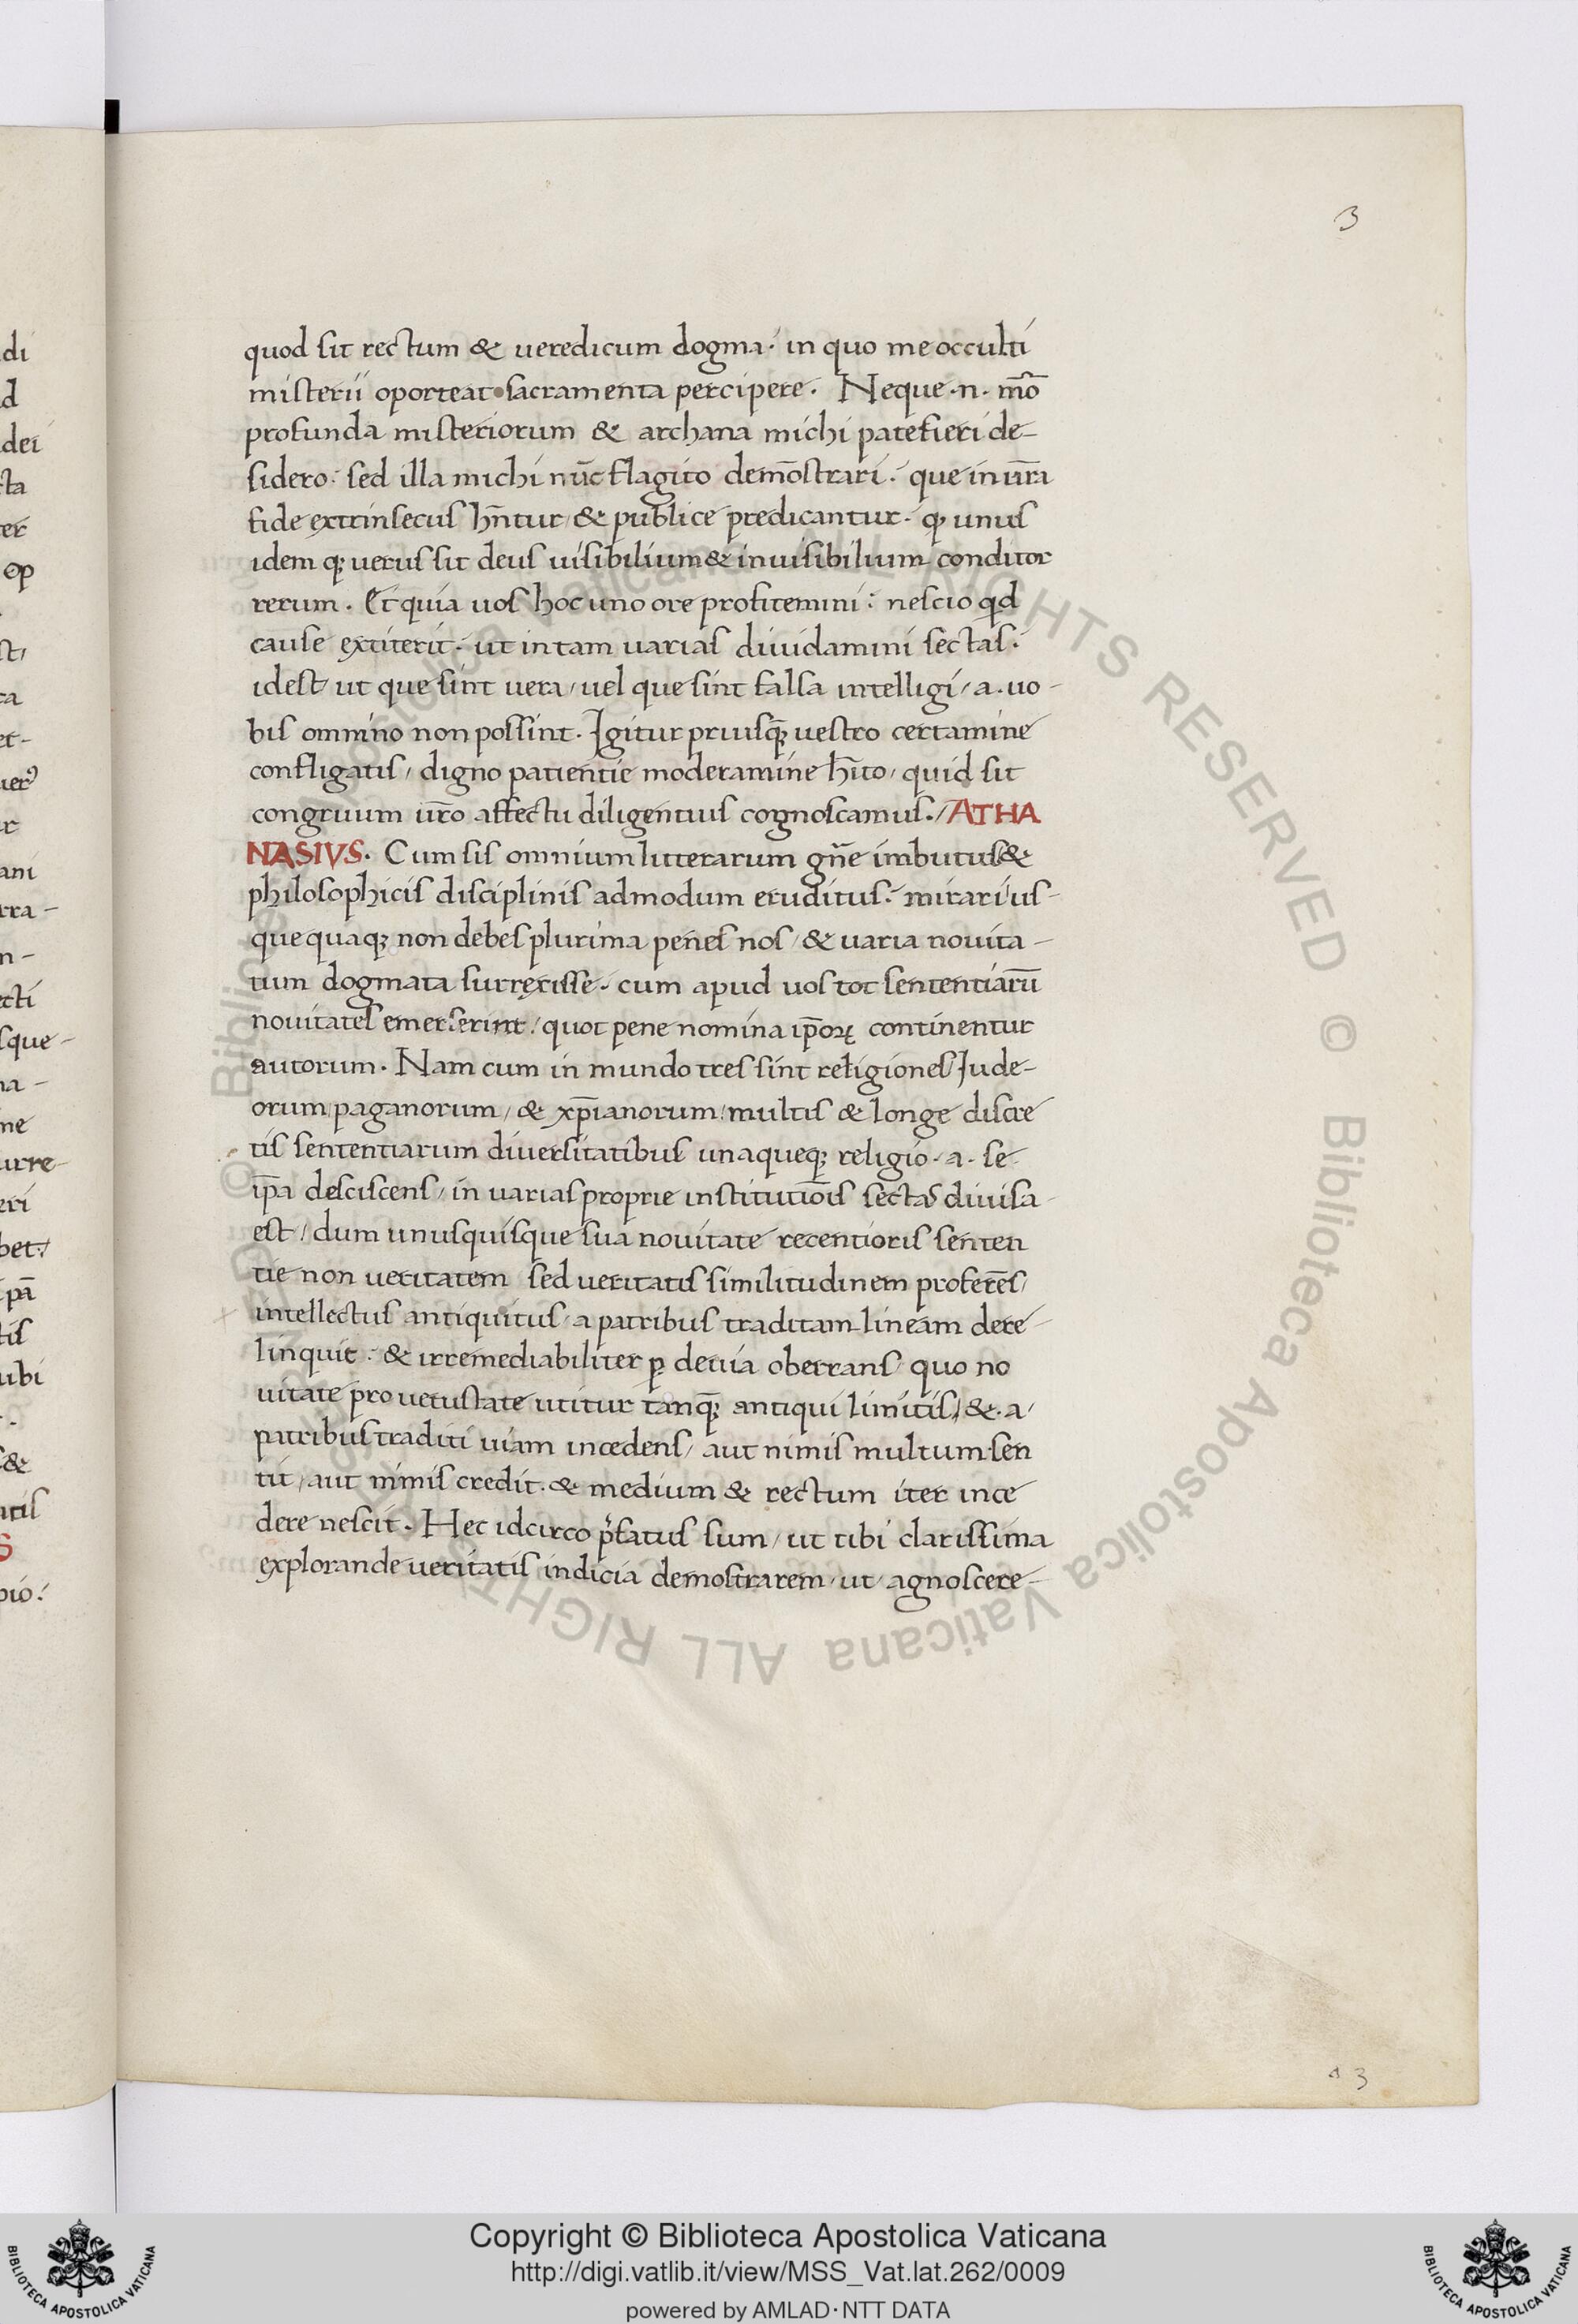 3
quod sit rectum & ueredicum dogma. in quo me occulti
misterii oporteat sacramenta percipere. Neque .n. mo̅
profunda misteriorum & archana michi patefieri de-
sidero. sed illa michi nu̅c flagito demo̅strari. que in ur̅a
fide extrinsecus hn̅tur / & publice predicantur. ꝙ unus
idem q; uerus sit deus uisibilium & inuisibilium conditor
rerum. Et quia uos hoc uno ore profitemini: nescio qd
cause extiterit. ut in tam uarias diuidamini sectas.
idest / ut que sint uera / uel que sint falsa intelligi / a. uo-
bis omnino non possint. Igitur priusq̅; uestro certamine
confligatis / digno patientie moderamine hi̅to / quid sit
congruum ur̅o affectu diligentius cognoscamus. / ATHA
NASIVS. Cum sis omnium litterarum gn̅e imbutus &
philosophicis disciplinis admodum eruditus. mirari us-
quequaq; non debes plurima penes nos / & uaria nouita-
tum dogmata surrexisse. cum apud uos tot sententiaru̅
nouitates emerserint / quot pene nomina ip̅oꝝ continentur
autorum. Nam cum in mundo tres sint religiones Jude-
orum / paganorum / & xp̅ianorum / multis & longe discre
tis sententiarum diuersitatibus unaqueq; religio. a. se
ip̅a desciscens / in uarias proprie institutio̅is sectas diuisa
est / dum unusquisque sua nouitate recentioris senten
tie non ueritatem sed ueritatis similitudinem profere̅s /
intellectus antiquitus / a patribus traditam lineam dere-
linquit. & irremediabiliter ꝑ deuia oberrans / quo no
uitate pro uetustate utitur tanq̅; antiqui limitis / & . a /
patribus traditi uiam incedens / aut nimis multum sen
tit / aut nimis credit. & medium & rectum iter ince
dere nescit. Hec idcirco p̅fatus sum / ut tibi clarissima
explorande ueritatis indicia demostrarem / ut / agnoscere-
3
Copyright © Biblioteca Apostolica Vaticana
http://digi.vatlib.it/view/MSS_Vat.lat.262/0009
powered by AMLAD·NTT DATA